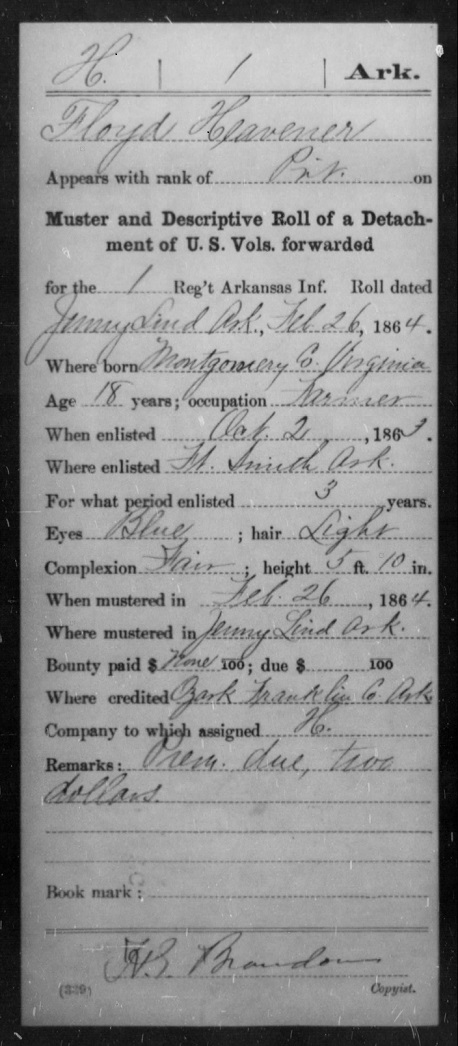 H. | 1 | Ark.
Floyd Heavener
Appears with rank of Pvt. on
Muster and Descriptive Roll of a Detach-
ment of U. S. Vols. forwarded
for the 1 Reg't Arkansas Inf. Roll dated
Jenny Lind Ark., Feb 26, 1864.
Where born Montgomery Co. Virginia
Age 18 years; occupation Farmer
When enlisted Oct. 2, 1863.
Where enlisted Ft. Smith Ark.
For what period enlisted 3 years.
Eyes Blue; hair Light
Complexion Fair; height 5 ft. 10 in.
When mustered in Feb. 26, 1864.
Where mustered in Jenny Lind Ark.
Bounty paid $ None 100; due $ 100
Where credited Ozark Franklin Co. Ark
Company to which assigned H.
Remarks: Prem. due, two
dollars.
Book mark:
Brandon
(339) Copyist.